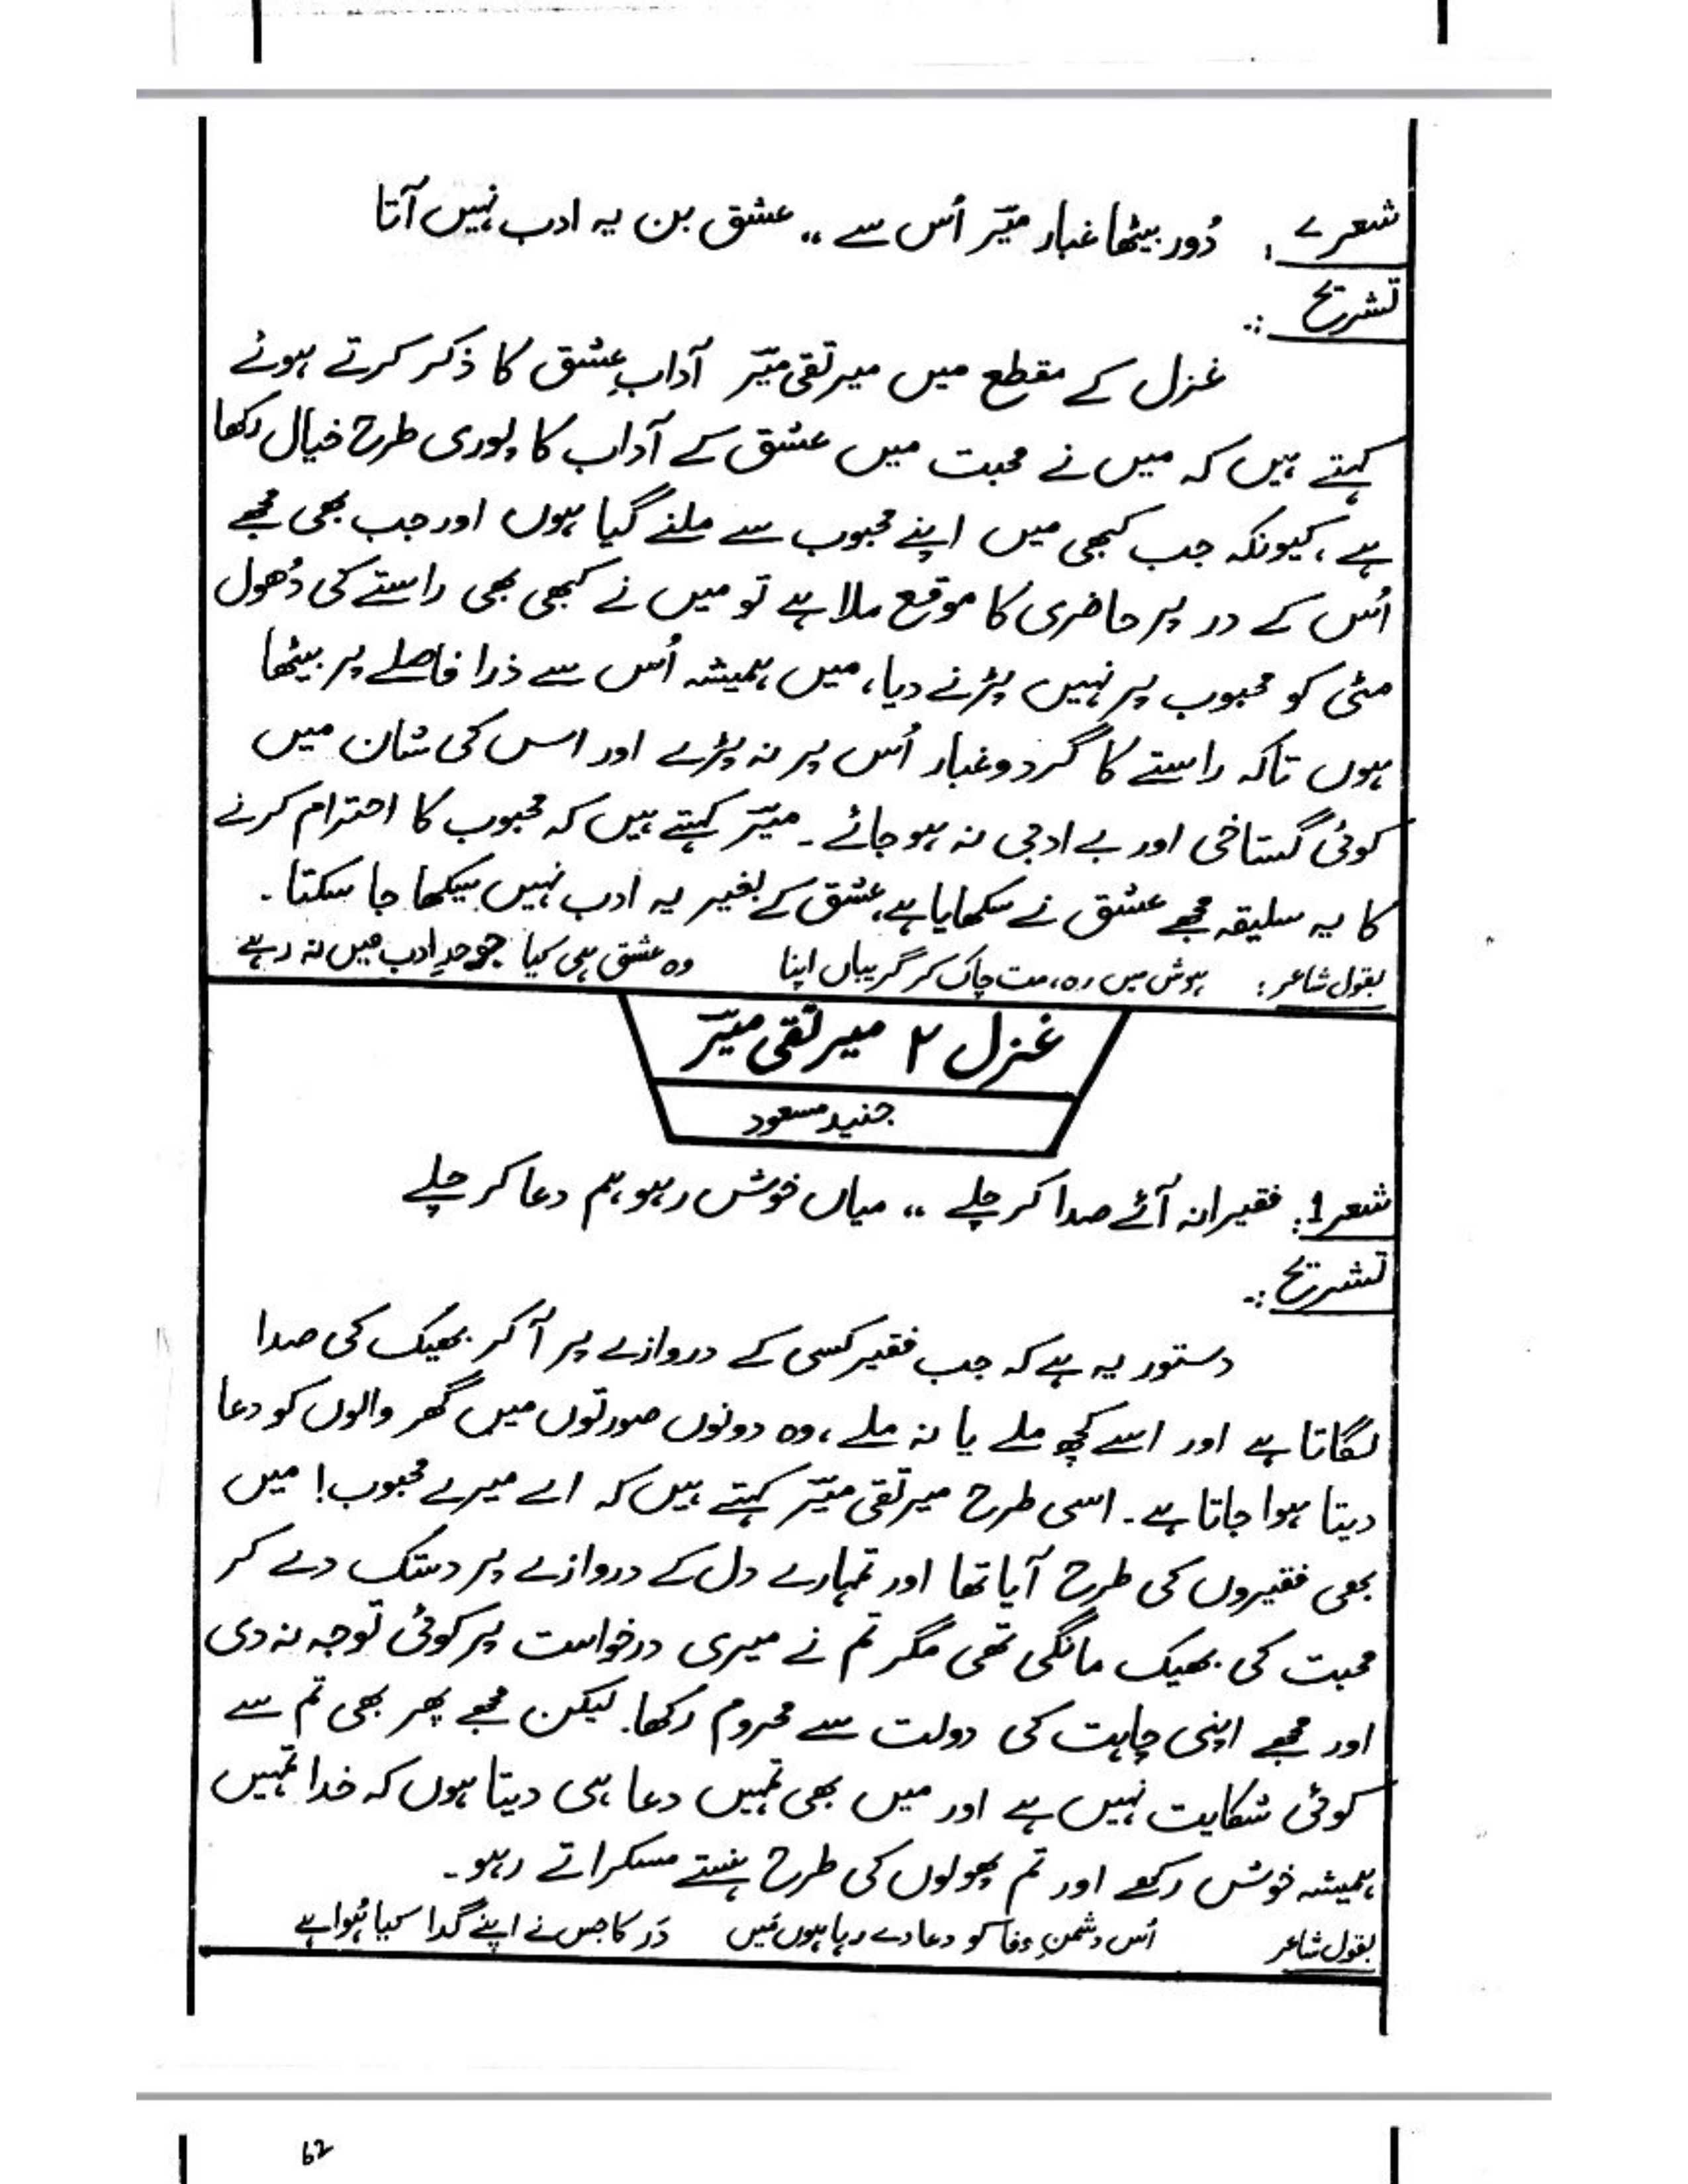 شعر ے: دُور بیٹھا غبار میرؔ اُس سے ،، عشق بن یہ ادب نہیں آتا
تشریح :-
غزل کے مقطع میں میر تقی میرؔ آدابِ عشق کا ذکر کرتے ہوئے
کہتے ہیں کہ میں نے محبت میں عشق کے آداب کا پوری طرح خیال رکھا
ہے، کیونکہ جب کبھی میں اپنے محبوب سے ملنے گیا ہوں اور جب بھی مجھے
اُس کے در پر حاضری کا موقع ملا ہے تو میں نے کبھی بھی راستے کی دُھول
مٹی کو محبوب پر نہیں پڑنے دیا، میں ہمیشہ اُس سے ذرا فاصلے پر بیٹھا
ہوں تاکہ راستے کا گرد و غبار اُس پر نہ پڑے اور اس کی شان میں
کوئی گستاخی اور بے ادبی نہ ہو جائے۔ میرؔ کہتے ہیں کہ محبوب کا احترام کرنے
کا یہ سلیقہ مجھے عشق نے سکھایا ہے، عشق کے بغیر یہ ادب نہیں سیکھا جا سکتا۔
بقول شاعر: ہوش میں رہ، مت چاک کر گریباں اپنا وہ عشق ہی کیا جو حدِ ادب میں نہ رہے
غزل ۲ میر تقی میرؔ
جنید مسعود
شعر 1: فقیرانہ آئے صدا کر چلے ،، میاں خوش رہو ہم دعا کر چلے
تشریح :-
دستور یہ ہے کہ جب فقیر کسی کے دروازے پر آ کر بھیک کی صدا
لگاتا ہے اور اسے کچھ ملے یا نہ ملے، وہ دونوں صورتوں میں گھر والوں کو دعا
دیتا ہوا جاتا ہے۔ اسی طرح میر تقی میرؔ کہتے ہیں کہ اے میرے محبوب! میں
بھی فقیروں کی طرح آیا تھا اور تمہارے دل کے دروازے پر دستک دے کر
محبت کی بھیک مانگی تھی مگر تم نے میری درخواست پر کوئی توجہ نہ دی
اور مجھے اپنی چاہت کی دولت سے محروم رکھا۔ لیکن مجھے پھر بھی تم سے
کوئی شکایت نہیں ہے اور میں بھی تمہیں دعا ہی دیتا ہوں کہ خدا تمہیں
ہمیشہ خوش رکھے اور تم پھولوں کی طرح ہنستے مسکراتے رہو۔
بقول شاعر اُس دشمنِ وفا کو دعا دے رہا ہوں مَیں دَر کا جس نے اپنے گدا کیا ہُوا ہے
62